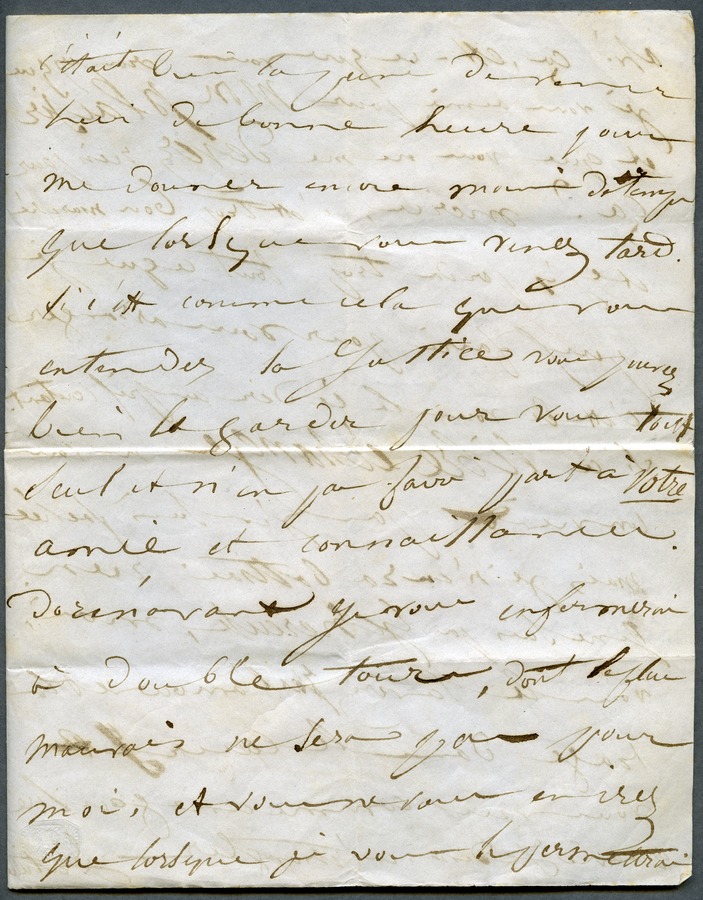 c'était bien la peine de venir
hier de bonne heure pour
me donner encore moin de temp
que lorsque vous venez tard.
si c'est comme cela que vous
entendez la Justice vous pouvez
bien la garder pour vous tout
seul et n'en pa faire part à votre
amie et connaissances.
Dorénavant je vous enfermerai
à double tours, dont le plus
mauvais ne sera pas pour
moi, et vous ne vous en irez
que lorsque je vous le permettrai